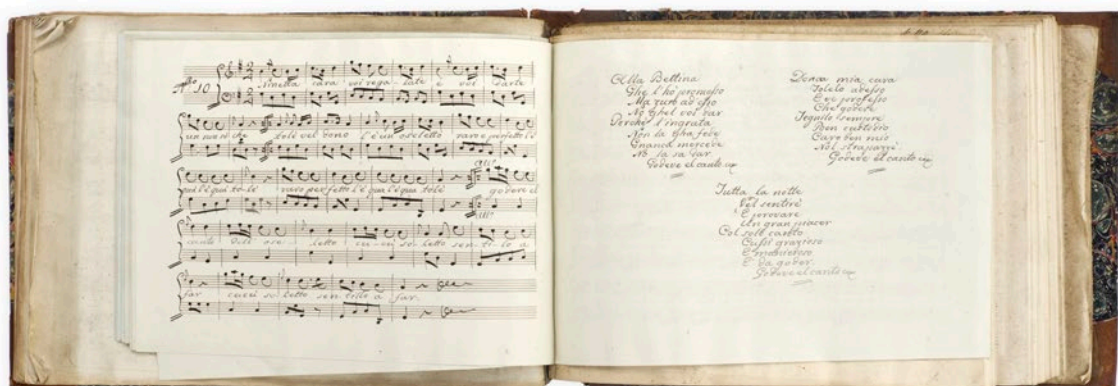 No 10
Ninetta cara vol rega late e vol darte
un musi che tolè vel dono l'è un oseletto raro e perfetto l'è
qui l'è qui tolè raro perfetto l'è qua l'è qui tolè godeve el
canto dell ose letto cucci so letto sentilo a
far cucci so letto sentilo a far.
Alla Bettina
Ghe l'hò promesso
Ma
No Ghel vol dar
Perchè l'ingrata
Non la Gha fede
Gnanca mercede
No la sa far
Godeve el canto
Donca mia cara
Tolelo adesso
E ve professo
Che godere
Tegnilo sempre
Ben
Caro ben mio
Nol
Godeve el canto
Tutta la notte
Vol sentirè
E provare
Un gran piacer
Col solt canto
Cussì grazioso
E manieroso
E da goder.
Godeve el canto